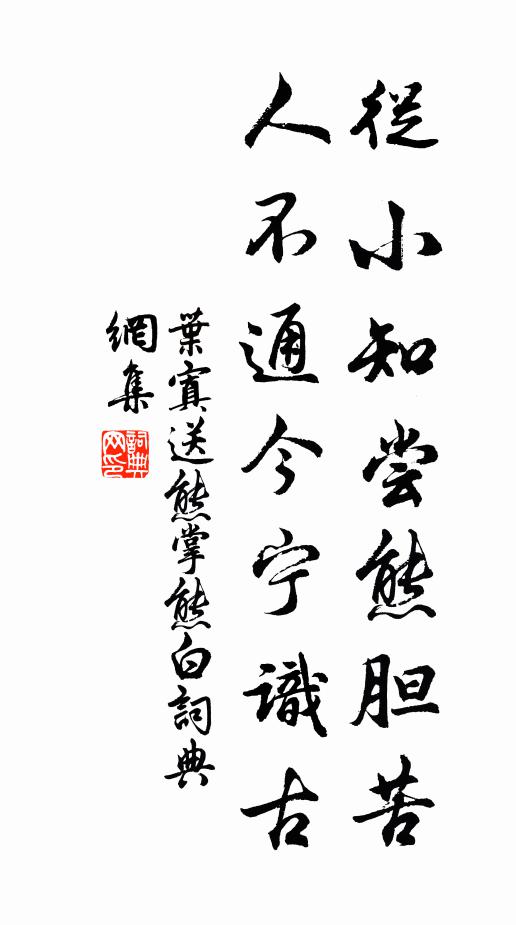 從小知尝熊胆苦
人不通今宁識古
葉寘送熊掌熊白詞典
網集
詞典
网印